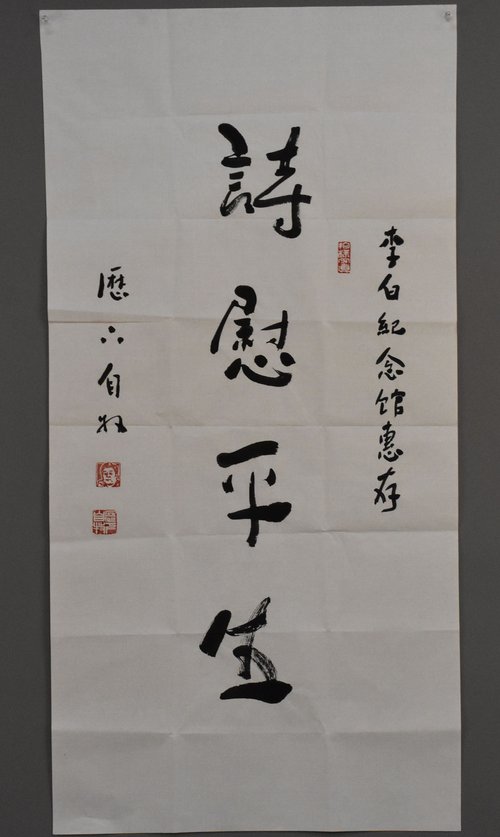 李白紀念馆惠存
詩慰平生
歷六自